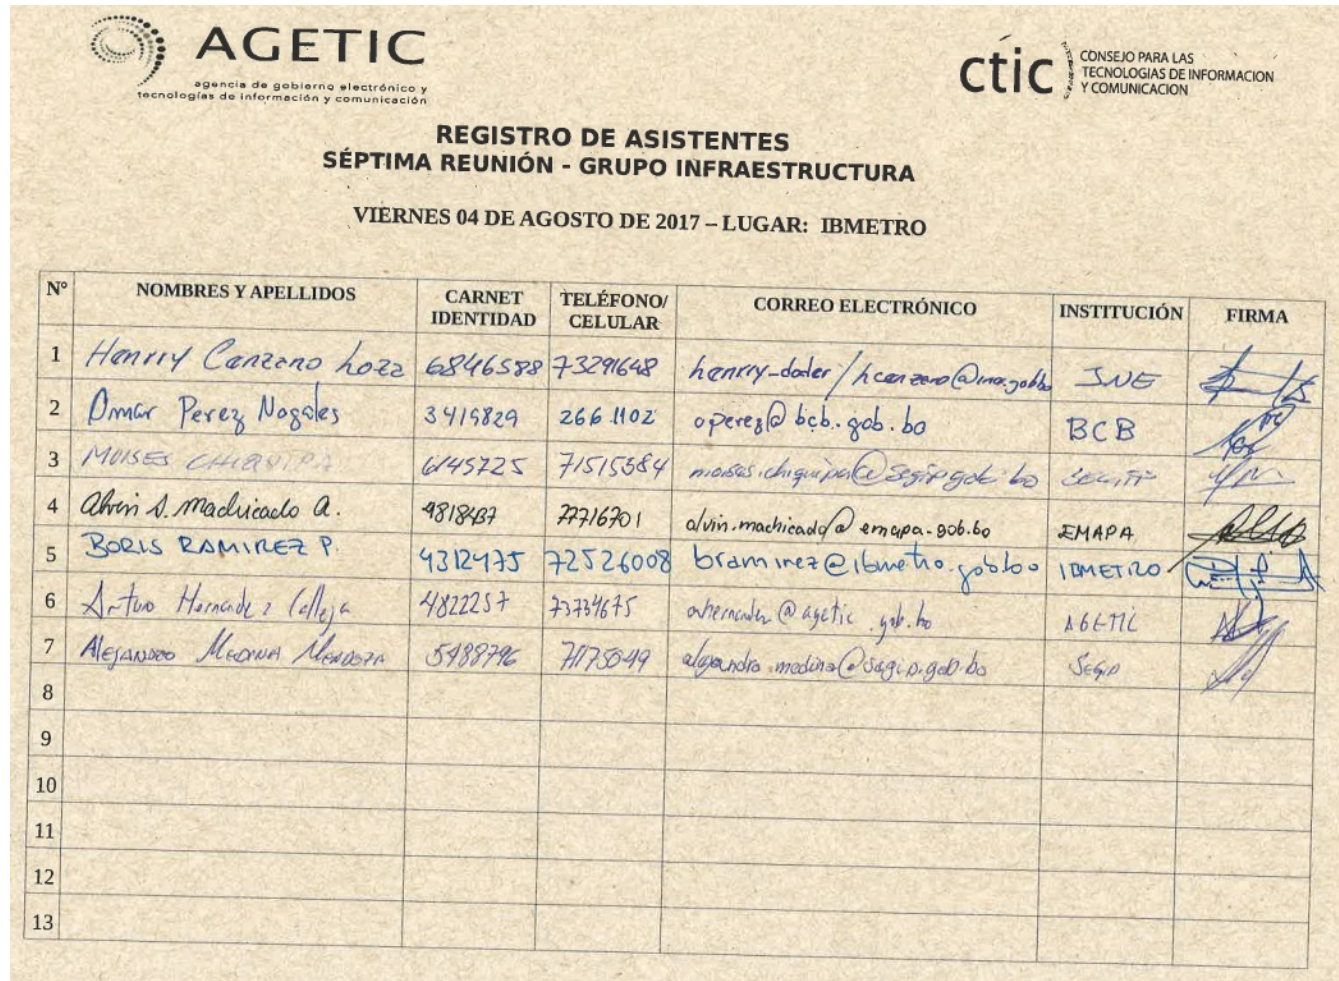 AGETIC
agencia de gobierno electrónico y
tecnologías de información y comunicación
ctic
CONSEJO PARA LAS
TECNOLOGIAS DE INFORMACION
Y COMUNICACION
REGISTRO DE ASISTENTES
SÉPTIMA REUNIÓN - GRUPO INFRAESTRUCTURA
VIERNES 04 DE AGOSTO DE 2017 – LUGAR: IBMETRO
N° NOMBRES Y APELLIDOS CARNET IDENTIDAD TELÉFONO/ CELULAR CORREO ELECTRÓNICO INSTITUCIÓN FIRMA
1 Henrry Canzeno 6846588 73291648 INE
2 Omar Perez Nogales 3415829 266 1102 operez@bcb.gob.bo BCB
3 MOISES CHIQUIPA 6145725 71515384 moises.chiquipa@segip.gob.bo SEGIP
4 Alvin S. Machicado A. 4818437 77716701 alvin.machicado@emapa.gob.bo EMAPA
5 BORIS RAMIREZ P. 4312475 72526008 bramirez@ibmetro.gob.bo IBMETRO
6 Arturo Hernandez Calleja 4822257 73734675 ahernandez@agetic.gob.bo AGETIC
7 ALEJANDRO MEDINA MENDOZA 5488796 71175049 alejandro.medina@segip.gob.bo SEGIP
8
9
10
11
12
13